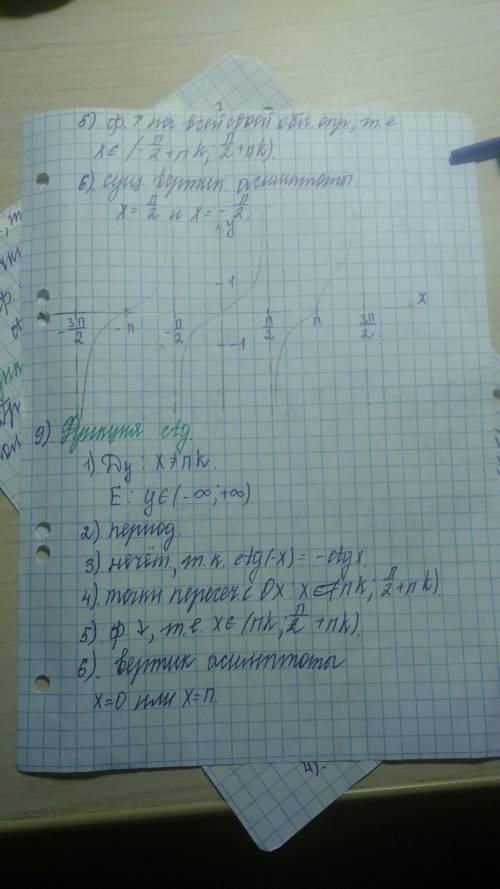 5) ф. ↑ на всей своей обл. опр., т.е.
x ∈ (-π/2 + πk; π/2 + πk).
6) сущ. вертик. асимптоты.
x = π/2 и x = -π/2.
y
1
x
-3π/2 -π -π/2 π/2 π 3π/2
-1
9) Функция ctg.
1) Dy: x ≠ πk.
E: y ∈ (-∞; +∞)
2) период.
3) нечёт, т.к. ctg(-x) = -ctgx.
4) точки пересеч с OX: x ∈ (πk; π/2 + πk)
5) ф. ↓, т.е. x ∈ (πk; π/2 + πk).
6) вертик асимптоты
x=0 или x=π.
4)